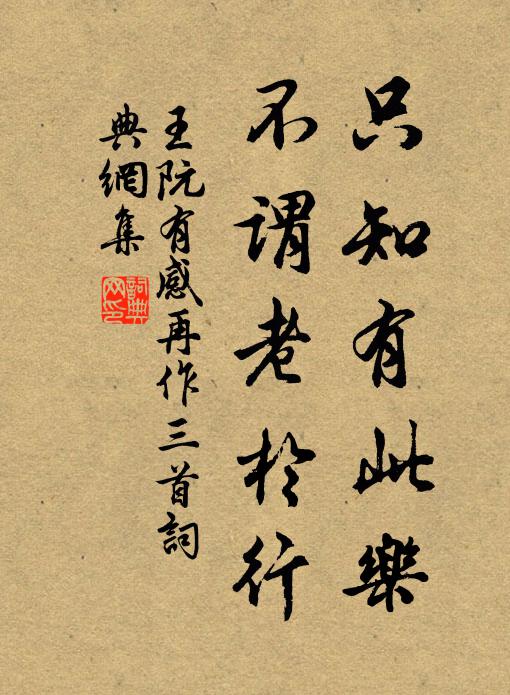 只知有此樂
不謂老於行
王阮有感再作三首詞
典網集
詞典
网印